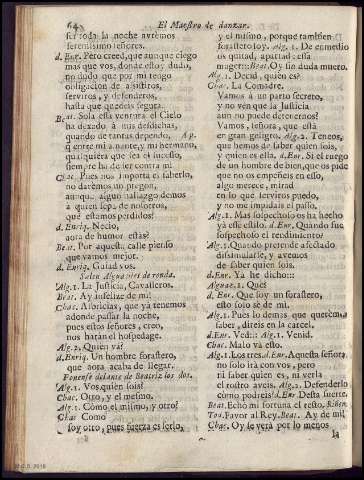 64 El Maestro de danzar.
ser toda la noche avrèmos
serenissimo señores.
d. Enr. Pero creed, que aunque ciego
mas que vos, donde estoy dudo,
no dudo que por mi tengo
obligacion de assistiros,
serviros, y defenderos,
hasta que quedeis segura.
Beat. Sola essa ventura el Cielo
ha dexado à mis desdichas,
quando de tantas dependo, Ap.
q̃ entre mi amante, y mi hermano,
qualquiera que sea el sucesso,
siempre ha de ser contra mi.
Chac. Pues nos importa el saberlo,
no darèmos un pregon,
aunque algun hallazgo demos
à quien sepa de nosotros,
què estamos perdidos!
d. Enriq. Necio,
aora de humor estàs?
Beat. Por aquesta calle pienso
que vamos mejor.
d. Enriq. Guiad vos.
Salen Alguaciles de ronda.
Alg. 1. La Justicia, Cavalleros.
Beat. Ay infeliz de mi!
Chac. Albricias, que yà tenemos
adonde passar la noche,
pues estos señores, creo,
nos haràn el hospedage.
Alg. 2. Quièn và?
d. Enriq. Un hombre forastero,
que aora acaba de llegar.
Ponense delante de Beatriz los dos.
Alg. 1. Vos, quien sois?
Chac. Otro, y el mesmo.
Alg. 1. Còmo el mismo, y otro?
Chac. Como
soy otro, pues fuerza es serlo,
y el mismo, porque tambien
forastero soy. Alg. 1. De enmedio
os quitad, apartad: essa
muger:: Beat. Oy sin duda muero.
Alg. 1. Decid, quièn es?
Chac. La Comadre.
Vamos à un parto secreto,
y no ven que la Justicia
aun no puede detenernos?
Vamos, señora, que està
en gran peligro. Alg. 2. Teneos,
que hemos de saber quien sois,
y quien es ella. d. Enr. Si el ruego
de un hombre de bien, que os pide
que no os empeñeis en esso,
algo merece, mirad
en lo que serviros puedo,
y no me impidais el passo.
Alg. 1. Mas sospechoso os ha hecho
yà esse estilo. d. Enr. Quando fue
sospechoso el rendimiento?
Alg. 1. Quando pretende afectado
dissimularse, y avemos
de saber quien sois.
d. Enr. Yà he dicho:::
Alguac. 1. Què?
d. Enr. Que soy un forastero,
esto solo sè de mi.
Alg. 1. Pues lo demàs que querèmos
saber, direis en la carcel.
d. Enr. Ved::: Alg. 1. Venid.
Chac. Malo và esto.
Alg. 1. Los tres. d. Enr. Aquesta señora
no solo irà con vos, pero
ni saber quien es, ni verla
el rostro aveis. Alg. 2. Defenderlo
còmo podreis? d. Enr Desta suerte.
Beat. Echò mi fortuna el resto. Riñen.
Tod. Favor al Rey. Beat. Ay de mi!
Chac. Oy se verà por lo menos
la